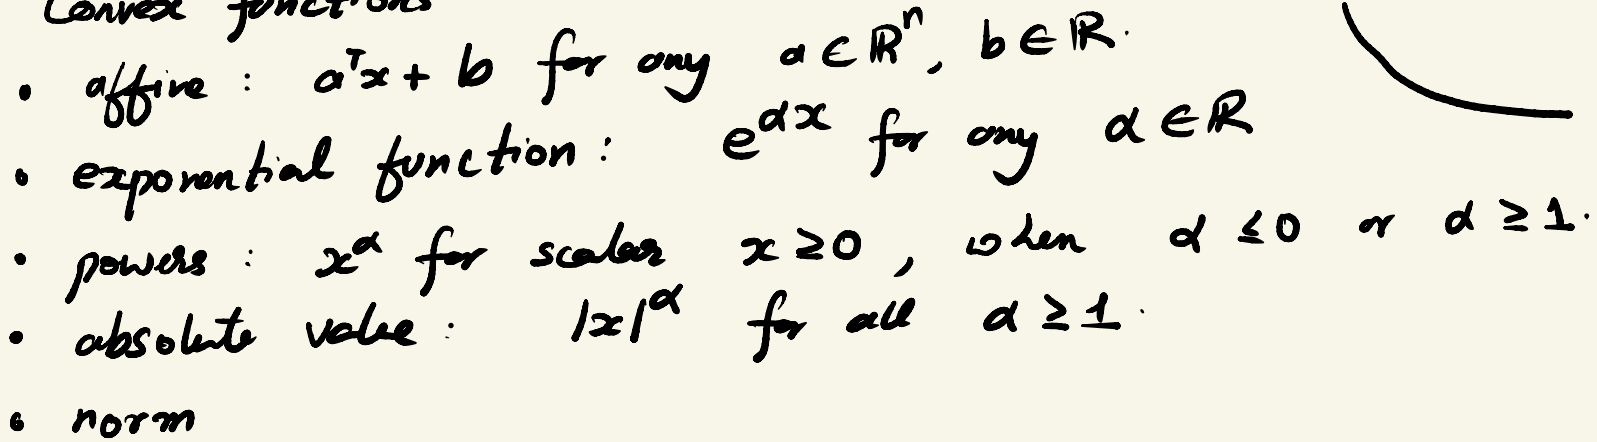 Convex functions
• affine : aᵀx + b for any a ∈ ℝⁿ, b ∈ ℝ.
• exponential function : e^{αx} for any α ∈ ℝ
• powers : x^α for scalar x ≥ 0, when α ≤ 0 or α ≥ 1.
• absolute value : |x|^α for all α ≥ 1.
• norm